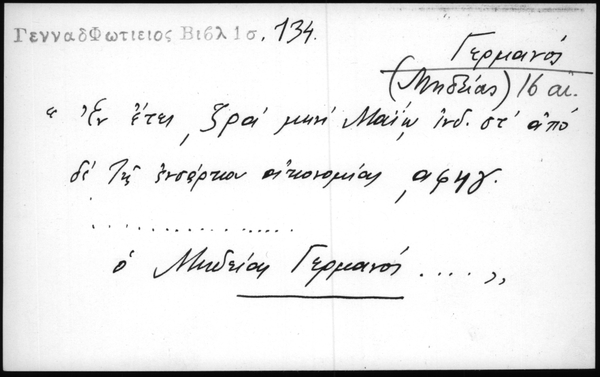 ΓενναδΦωτιειος Βιβλ 1σ. 134.
Γερμανός
(Μηδείας) 16 αι.
“ Ἐν ἔτει ͵ζρα΄ μηνί Μαΐῳ ἰνδ. στ΄ ἀπό
δέ τῆς ἐνσάρκου οἰκονομίας ͵αφηγ.
................
ὁ Μηδείας Γερμανός .... ”